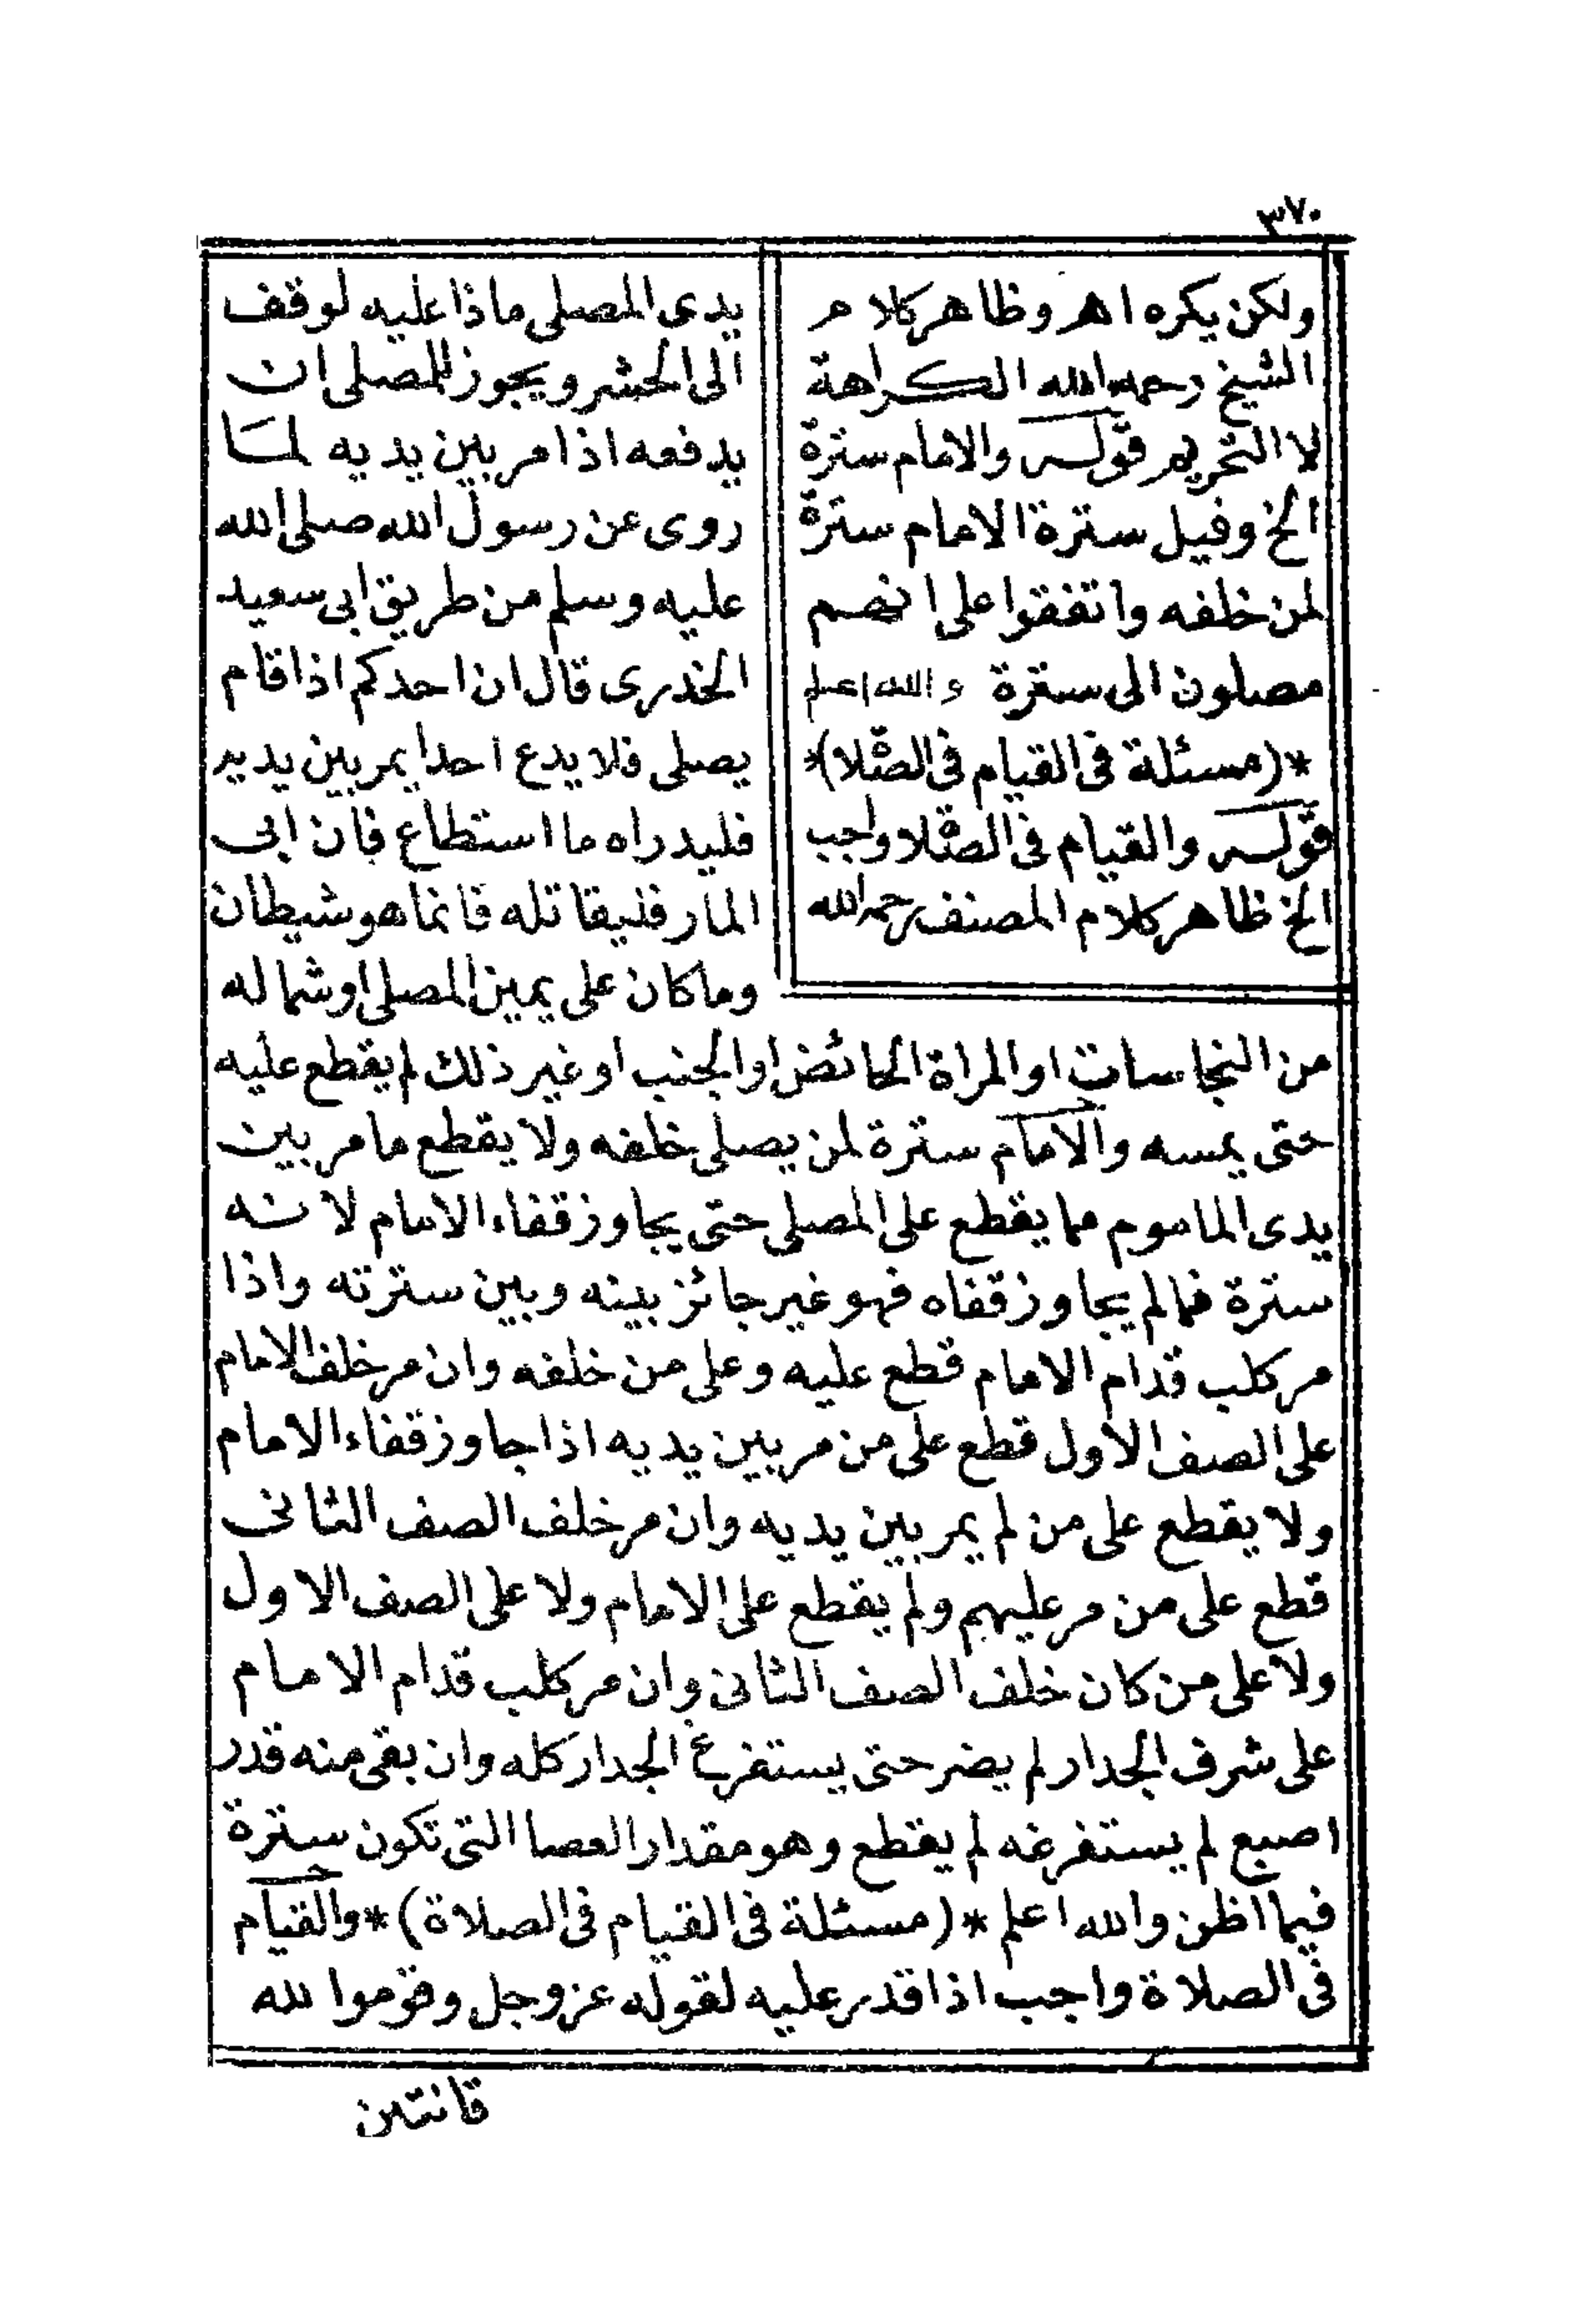 ٣٧٠
ولكن يكره اهر وظاهر كلام
الشيخ رحمه الله الكراهة
لا التحريم قوله والامام سترة
الخ وفيل سترة الامام سترة
لمن خلفه واتفقوا على انهم
مصلون الى سترة والله اعلم
*(مسئلة في القيام في الصلاة)*
قوله والقيام في الصلاة واجب
الخ ظاهر كلام المصنف رحمه الله
يدى المصلى ماذا عليه لوقف
الى الحشر ويجوز للمصلى ان
يدفعه اذا مر بين يديه لما
روى عن رسول الله صلى الله
عليه وسلم من طريق ابى سعيد
الخدرى قال ان احدكم اذا قام
يصلى فلا يدع احدا يمر بين يديه
فليدراه ما استطاع فان ابى
المار فليقاتله فانما هو شيطان
وما كان على يمين المصلى او شماله
من النجاسات او المراة الحائض او الجنب او غير ذلك لم يقطع عليه
حتى يمسه والامام سترة لمن يصلى خلفه ولا يقطع ما مر بين
يدى الماموم مما يقطع على المصلى حتى يجاوز قفاء الامام لانه
سترة فما لم يجاوز قفاه فهو غير جائز بينه وبين سترته واذا
مر كلب قدام الامام قطع عليه وعلى من خلفه وان مر خلف الامام
على الصف الاول قطع على من مر بين يديه اذا جاوز قفاء الامام
ولا يقطع على من لم يمر بين يديه وان مر خلف الصف الثانى
قطع على من مر عليهم ولم يقطع على الامام ولا على الصف الاول
ولا على من كان خلف الصف الثانى وان مر كلب قدام الامام
على شرف الجدار لم يضر حتى يستفرغ الجدار كله وان بقى منه قدر
اصبع لم يستفرغه لم يقطع وهو مقدار العصا التى تكون سترة
فيما اظن والله اعلم *(مسئلة فى القيام فى الصلاة)* والقيام
فى الصلاة واجب اذا قدر عليه لقوله عز وجل وقوموا لله
قانتين